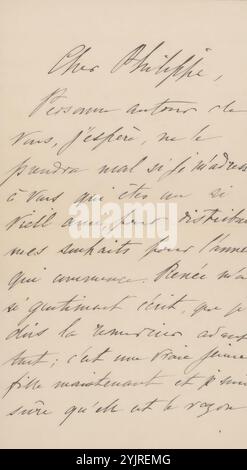 Cher Philippe,
Personne autour de
vous, j'espère, ne le
prendra mal si je m'adresse
à vous qui êtes un si
vieil ami, pour distribuer
mes souhaits pour l'année
qui commence. Renée m'a
si gentiment écrit, que je
dois la remercier avant
tout; c'est une vraie jeune
fille maintenant et je suis
sûre qu'elle est le rayon
alamy
Image ID: 2YJREMG
www.alamy.com